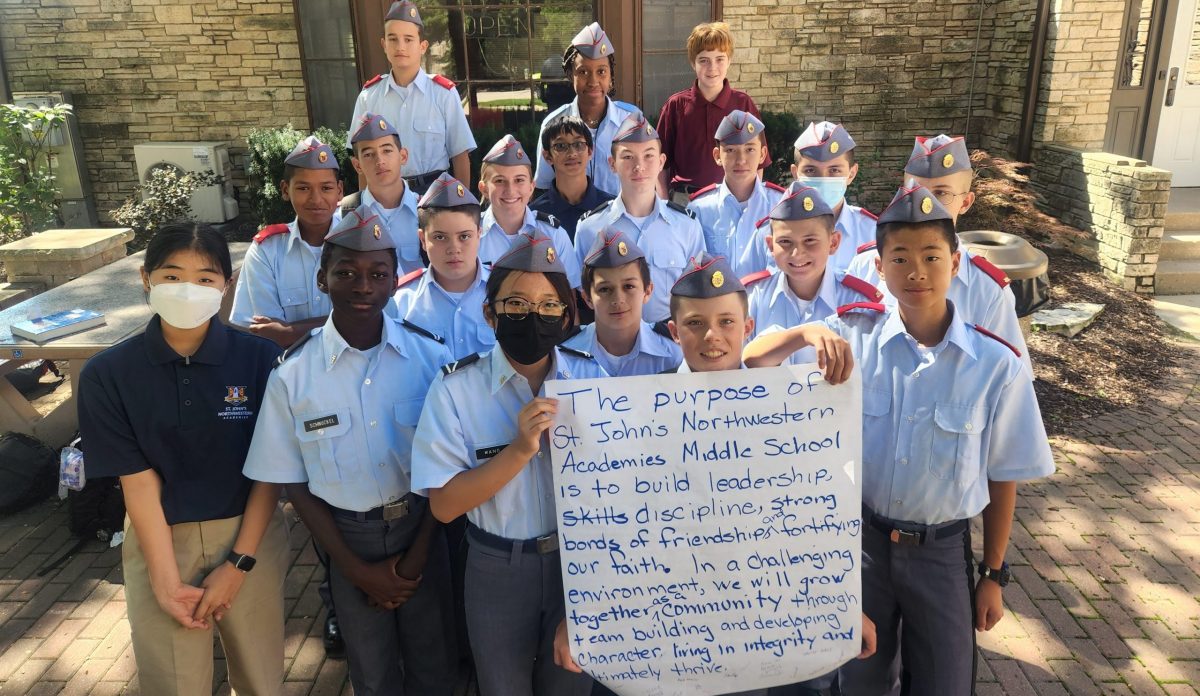 OPEN
ST. JOHN'S
NORTHWESTERN
ACADEMIES
The purpose of
St. John's Northwestern
Academies Middle School
is to build leadership,
skills discipline, strong
bonds of friendship, and fortifying
our faith. In a challenging
environment, we will grow
together as a community through
team building and developing
character, living in integrity and
ultimately thrive.